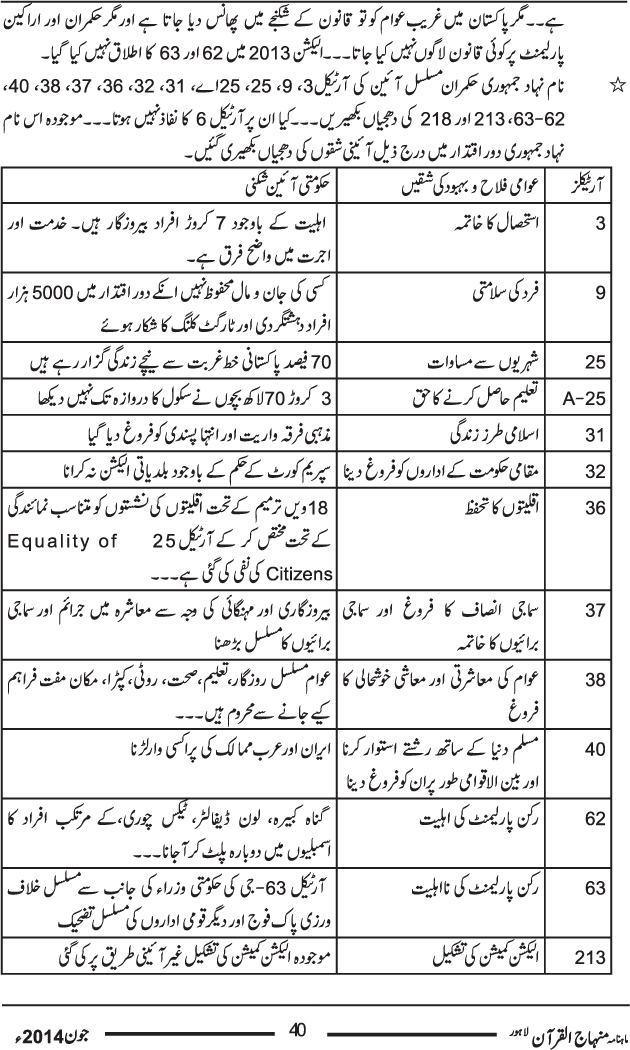 ہے۔۔مگر پاکستان میں غریب عوام کو تو قانون کے شکنجے میں پھانس دیا جاتا ہے اور مگر حکمران اور اراکین
پارلیمنٹ پر کوئی قانون لاگوں نہیں کیا جاتا۔۔۔الیکشن 2013 میں 62 اور 63 کا اطلاق نہیں کیا گیا۔
☆ نام نہاد جمہوری حکمران مسلسل آئین کی آرٹیکل3، 9، 25، 25اے، 31، 32، 36، 37، 38، 40،
62-63، 213 اور 218 کی دھجیاں بکھیریں۔۔۔کیا ان پر آرٹیکل 6 کا نفاذ نہیں ہوتا۔۔۔موجودہ اس نام
نہاد جمہوری دور اقتدار میں درج ذیل آئینی شقوں کی دھجیاں بکھیری گئیں۔
آرٹیکلز عوامی فلاح و بہبود کی شقیں حکومتی آئین شکنی
3 استحصال کا خاتمہ اہلیت کے باوجود 7 کروڑ افراد بیروزگار ہیں۔ خدمت اور
اجرت میں واضح فرق ہے۔
9 فرد کی سلامتی کسی کی جان و مال محفوظ نہیں انکے دور اقتدار میں 5000 ہزار
افراد دہشتگردی اور ٹارگٹ کلنگ کا شکار ہوئے
25 شہریوں سے مساوات 70 فیصد پاکستانی خط غربت سے نیچے زندگی گزار رہے ہیں
A-25 تعلیم حاصل کرنے کا حق 3 کروڑ 70لاکھ بچوں نے سکول کا دروازہ تک نہیں دیکھا
31 اسلامی طرز زندگی مذہبی فرقہ واریت اور انتہا پسندی کو فروغ دیا گیا
32 مقامی حکومت کے اداروں کو فروغ دینا سپریم کورٹ کے حکم کے باوجود بلدیاتی الیکشن نہ کرانا
36 اقلیتوں کا تحفظ 18ویں ترمیم کے تحت اقلیتوں کی نشستوں کو متناسب نمائندگی
کے تحت مختص کر کے آرٹیکل 25 Equality of
Citizens کی نفی کی گئی ہے۔۔۔
37 سماجی انصاف کا فروغ اور سماجی بیروزگاری اور مہنگائی کی وجہ سے معاشرہ میں جرائم اور سماجی
برائیوں کا خاتمہ برائیوں کا مسلسل بڑھنا
38 عوام کی معاشرتی اور معاشی خوشحالی کا عوام مسلسل روزگار،تعلیم،صحت، روٹی،کپڑا، مکان مفت فراہم
فروغ کیے جانے سے محروم ہیں۔۔۔
40 مسلم دنیا کے ساتھ رشتے استوار کرنا ایران اور عرب ممالک کی پراکسی وار لڑنا
اور بین الاقوامی طور پر ان کو فروغ دینا
62 رکن پارلیمنٹ کی اہلیت گناہ کبیرہ، لون ڈیفالٹر، ٹیکس چوری،کے مرتکب افراد کا
اسمبلیوں میں دوبارہ پلٹ کر آجانا۔۔۔
63 رکن پارلیمنٹ کی نااہلیت آرٹیکل 63-جی کی حکومتی وزراء کی جانب سے مسلسل خلاف
ورزی پاک فوج اور دیگر قومی اداروں کی مسلسل تضحیک
213 الیکشن کمیشن کی تشکیل موجودہ الیکشن کمیشن کی تشکیل غیر آئینی طریق پر کی گئی
ماہنامہ منہاج القرآن لاہور 40 جون 2014ء